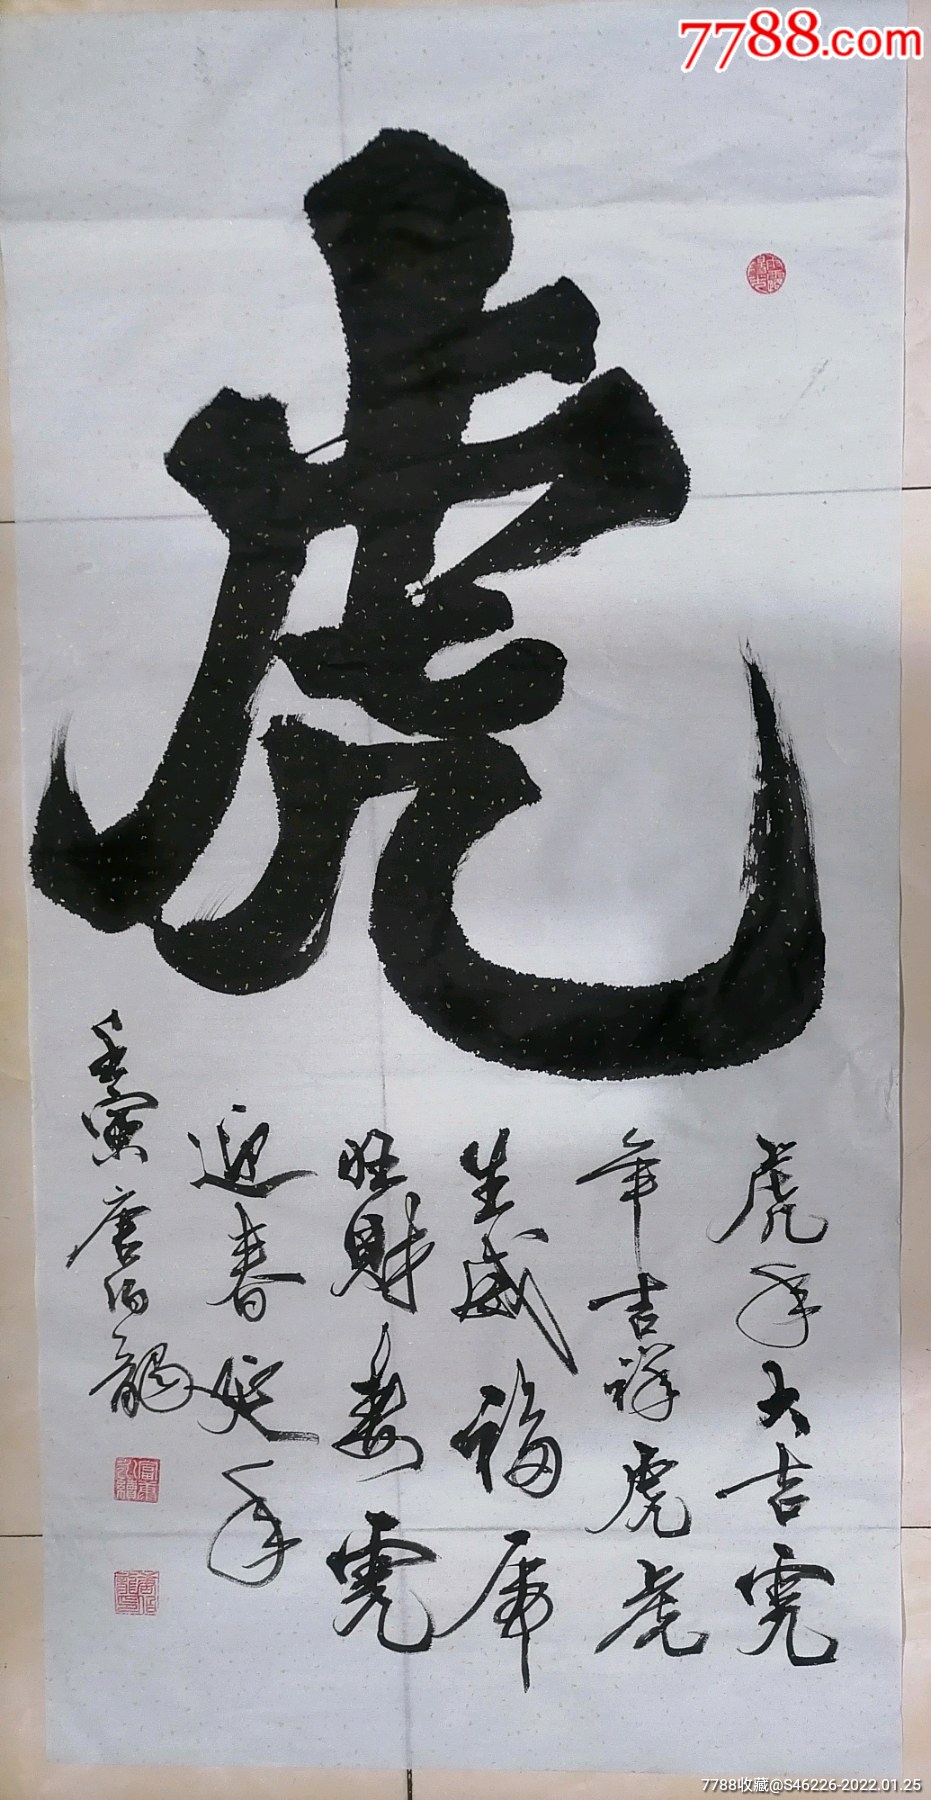 7788.com
虎
虎年大吉虎
年吉祥虎虎
生威福虎
旺财寿虎
迎春延年
壬寅 唐伯
7788收藏@S46226-2022.01.25